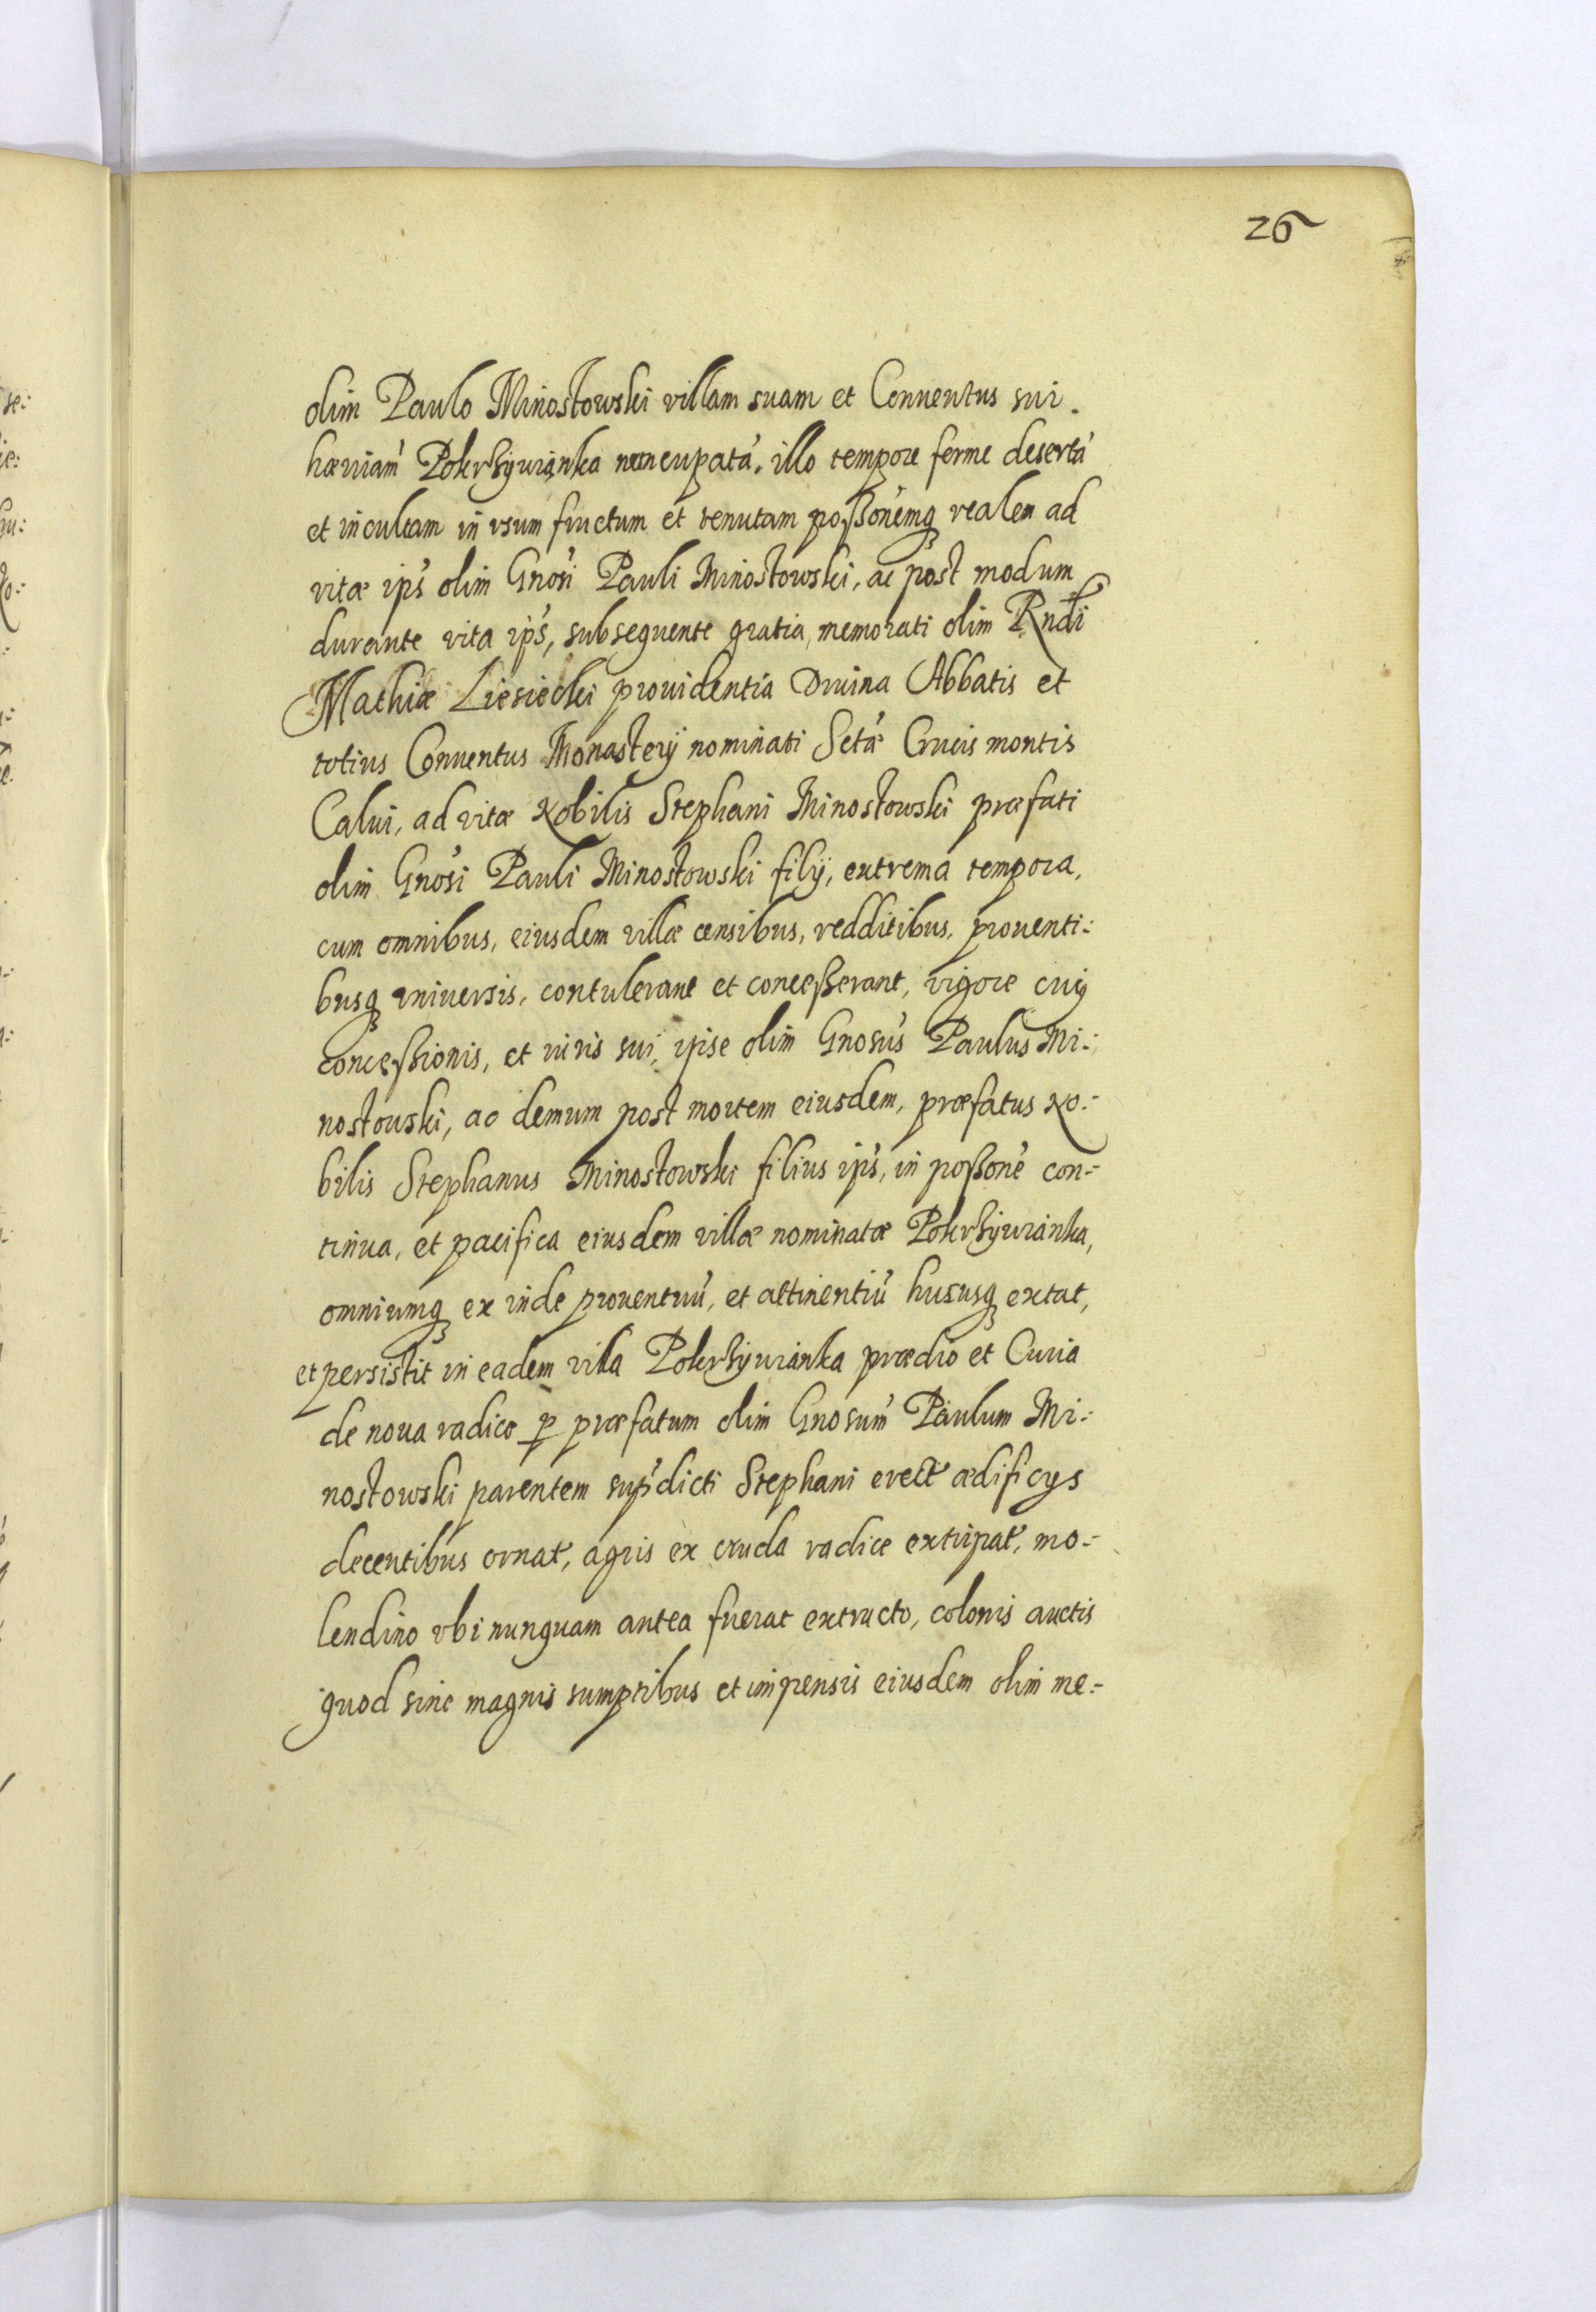 26
olim Paulo Minostowski villam suam et Conuentus sui.
hæreniam Pokrhÿwianka nuncupatá, illo tempore ferme desertá
et incultam in vsum fructum et tenutam poßonémq realem ad
vitæ ips olim Gnosi Pauli Minostowski, ac post modum
durante vita ips, subsequente gratia, memorati olim Rndi
Mathiæ Liesiecki prouidentia Diuina Abbatis et
totius Conuentus Monasterÿ nominati Sctæ Crucis montis
Calui, ad vitæ Nobilis Stephani Minostowski præfati
olim Gnosi Pauli Minostowski filÿ, extrema tempora,
cum omnibus, eiusdem villæ censibus, redditibus, prouenti:
busq vniuersis, contulerant et conceßerant, vigore cuiq
conceßionis, et iuris sui, ipse olim Gnosus Paulus Mi:
nostouski, ac demum post mortem eiusdem, præfatus No:
bilis Stephanus Minostowski filius ips, in poßone con:
tinua, et pacifica eiusdem villæ nominatæ Pokrhÿwianka,
omniumq ex inde prouentuú, et attinentiú hucusq extat,
et persistit in eadem villa Pokrhÿwianka prædio et Curia
de noua radice p præfatum olim Gnosum Paulum Mi:
nostowski parentem supdicti Stephani erect ædificys
decentibus ornat, agris ex cruda radice extirpat, mo:
lendino vbi nunquam antea fuerat extructo, colonis auctis
quod sine magnis sumptibus et impensis eiusdem olim me: